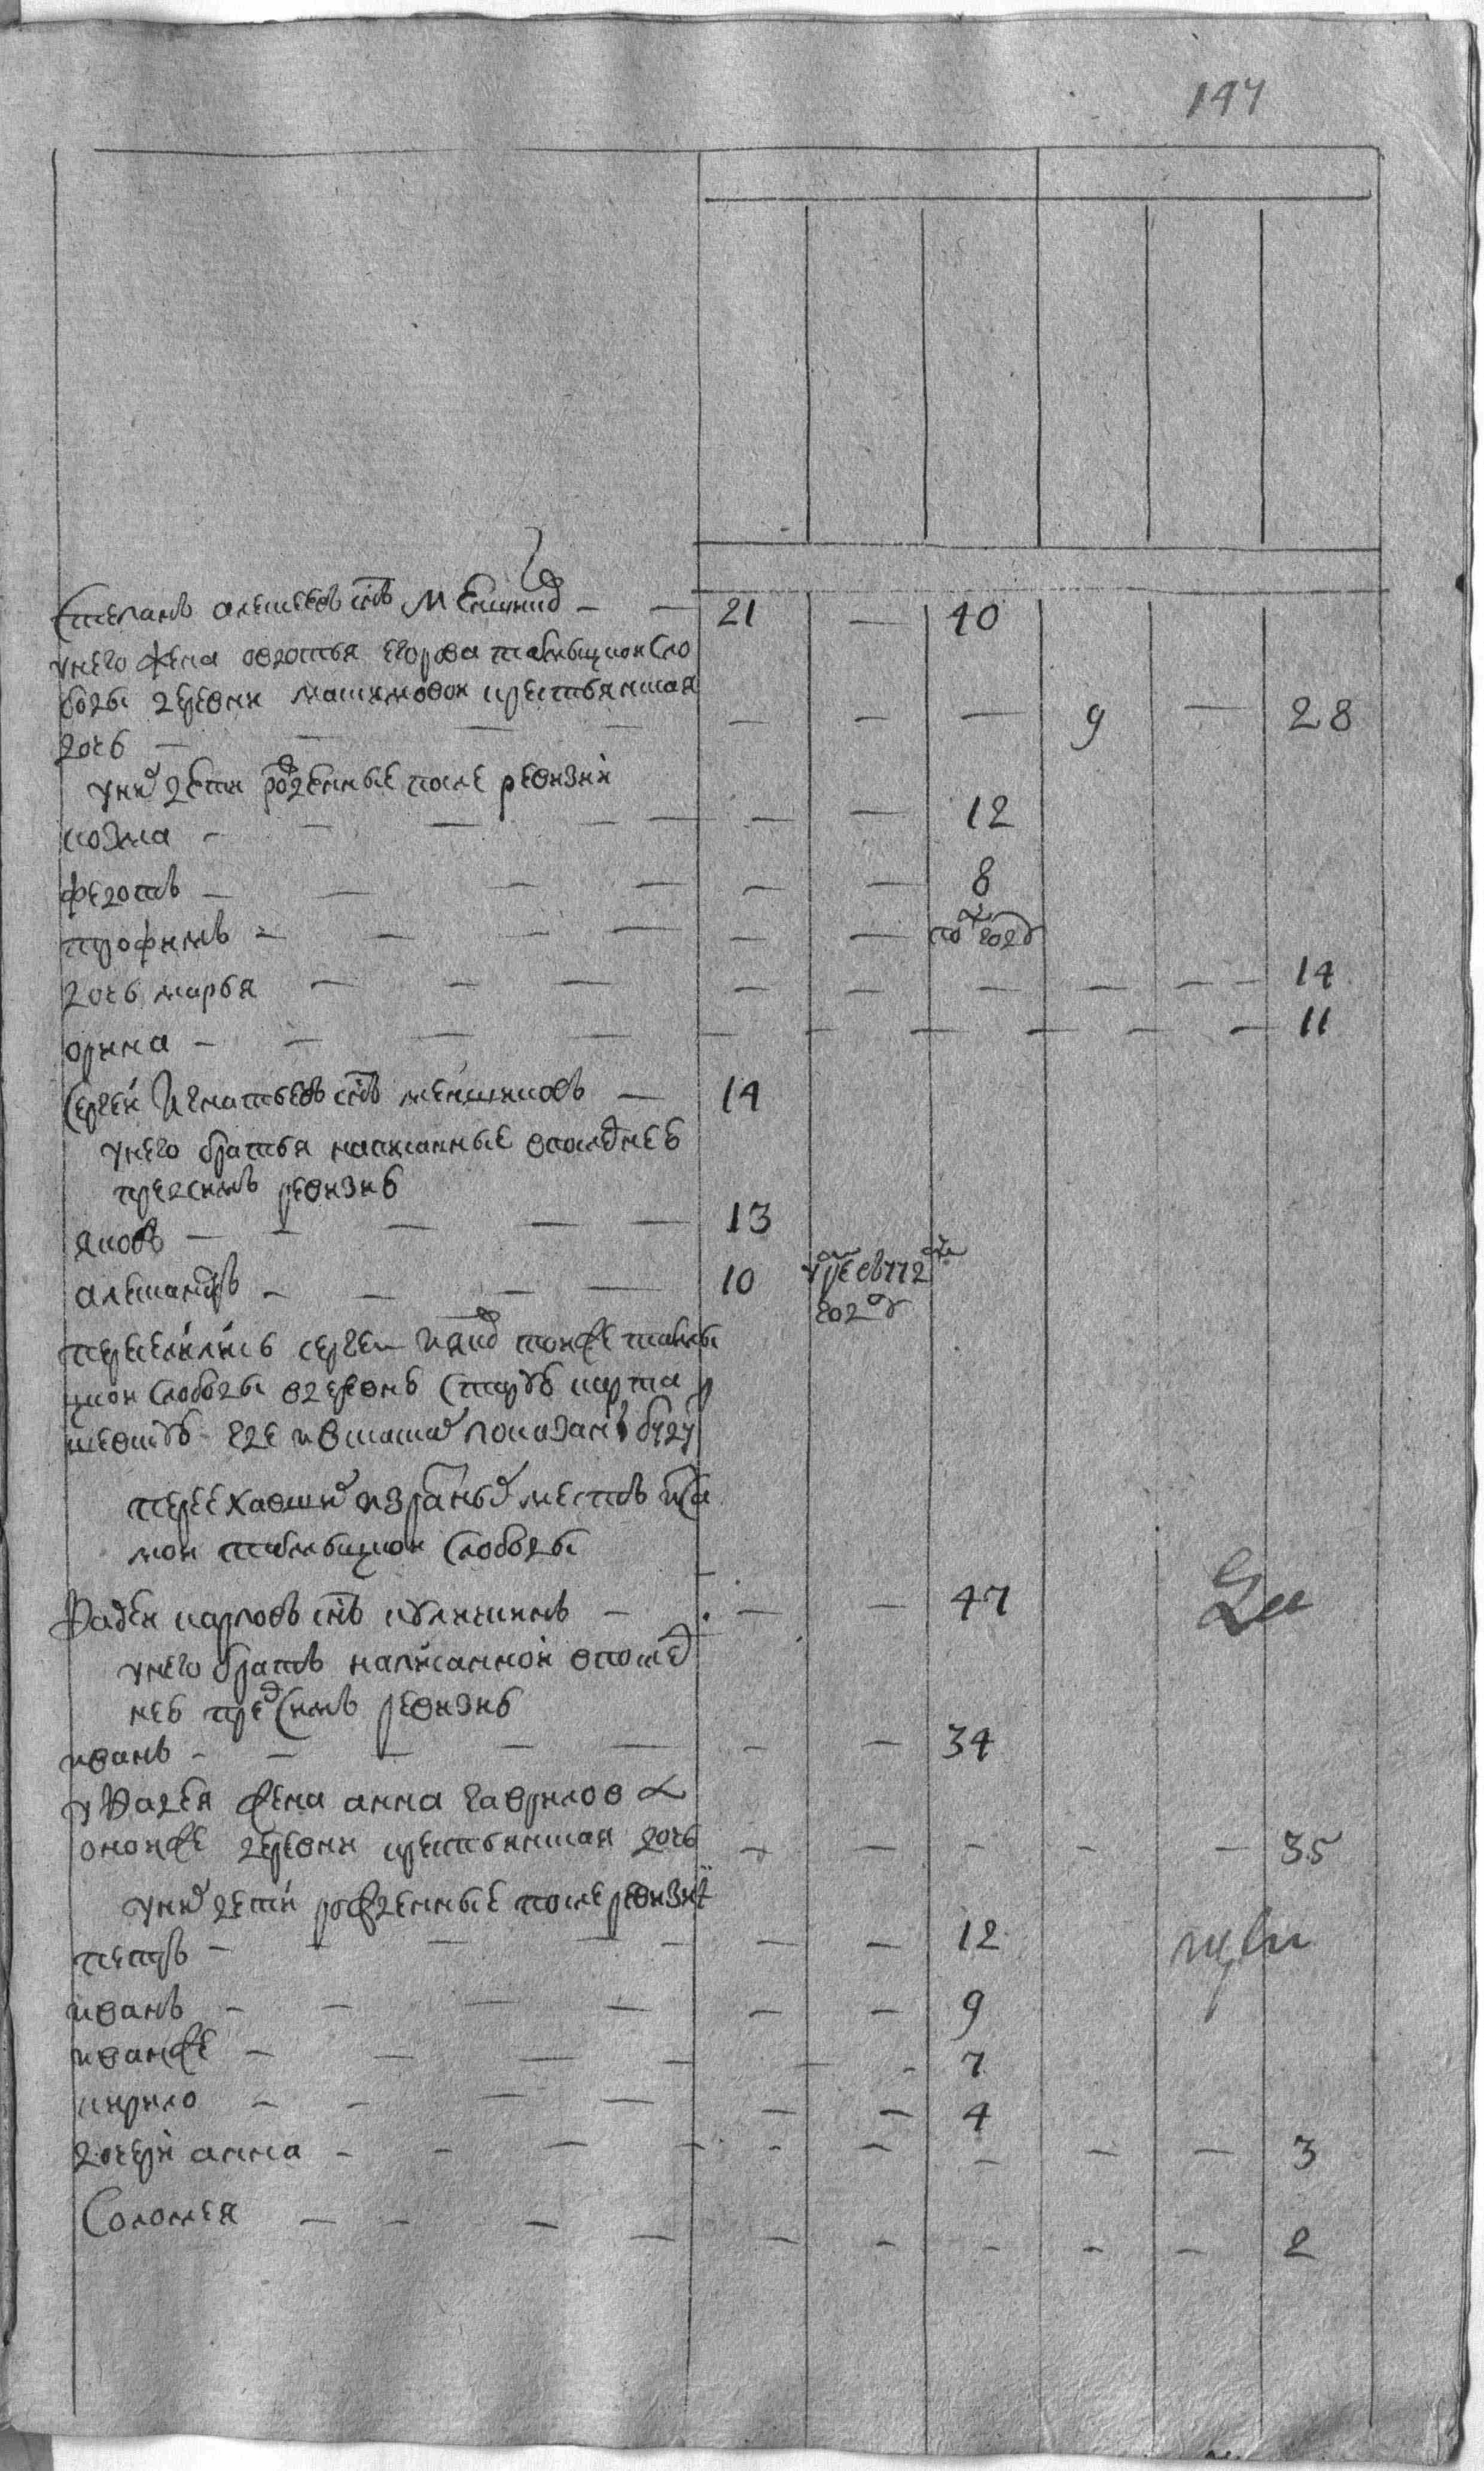 197
Степанъ алексеевъ снъ Меншико – – 21 – 40
унего жена овдотья егорова тавлыцкои сло
боды деревни крестьянская
дочь – – – – – – – 9 – 28
уни дети рожденные после ревизи
козма – – – – – – – 12
федотъ – – – – – – 8
трофимъ – – – – – – пол года
дочь марья – – – – – – – – – 14
орина – – – – – – – – – – 11
Сергеи Игнатьевъ снъ меншиковъ – 14
унего братья написанные впоследнеь
предсимъ ревизиь
яковъ – – – – – 13
александръ – – – – 10 умре въ 772
году
переселились сергеи ияко тоиже тавлы
цкои слободы вдеревнь старую
где искаски показаны будут
переехавши изразны местъ иса
мои тавлыцкои слободы
Фадеи карповъ снъ – – – 47
унего братъ написанной впослед
неь предсимъ ревизиь
иванъ – – – – – – – 34
уфадея жена анна гаврилова
оноиже деревни крестьянская дочь – – – – – 35
уни дети рожденные после ревизиi
петръ – – – – – – – 12
иванъ – – – – – – 9
иванже – – – – – – 7
кирило – – – – – – 4
дочери анна – – – – – – – – – 3
Соломея – – – – – – – – – 2